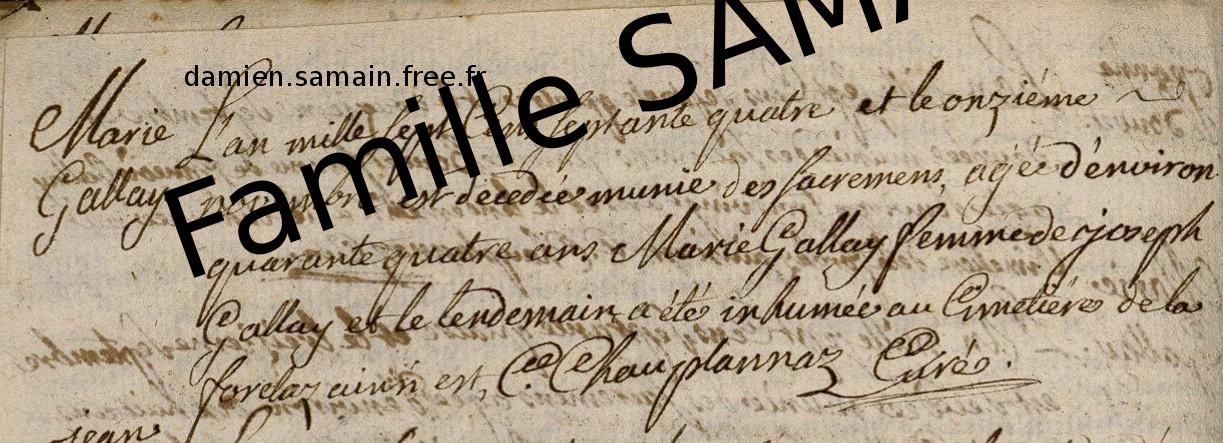 Famille SAMA
damien.samain.free.fr
Marie L'an mille sept Cent septante quatre et le onziéme
Gallay novembre est décedée munie des sacremens, agée d'énviron
quarante quatre ans Marie Gallay femme de joseph
Gallay et le lendemain a été inhumée au Cimetiére de la
forclaz ainsi est, Chauplannaz Curé.
jean